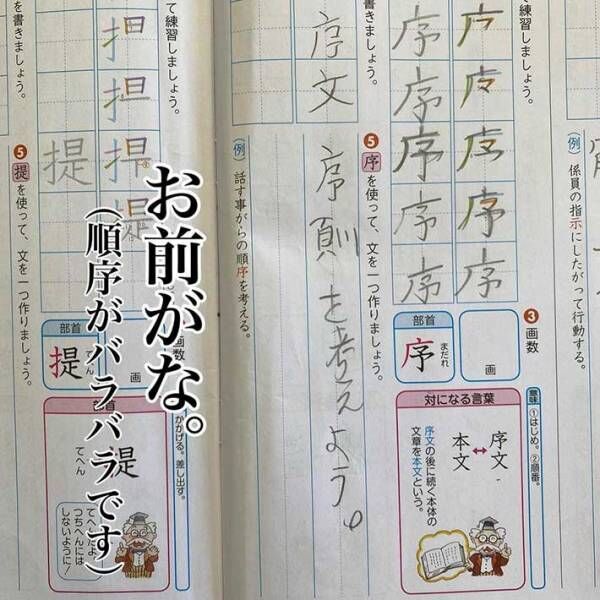 (例) 係員の指示にしたがって行動する。
て練習しましょう。
序
序
序
序
序
序
序
❸画数
画
意味 ①はじめ。②順番。
部首
序
まだれ
対になる言葉
序文
↔
本文
序文の後に続く本体の
文章を本文という。
を書きましょう。
序文
❺序を使って、文を一つ作りましょう。
序則を考えよう。
(例) 話す事がらの順序を考える。
お前がな。
(順序がバラバラです)
て練習しましょう。
担
担
提
提
画数
画
かかげる。差し出す。
部首
提
提
てへん
てへんだよ
つちへんには
しないように!
を書きましょう。
❺提を使って、文を一つ作りましょう。